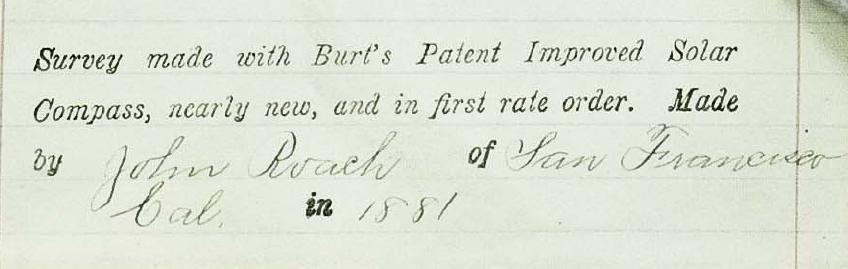 Survey made with Burt's Patent Improved Solar
Compass, nearly new, and in first rate order. Made
by John Roach of San Francisco
Cal. in 1881